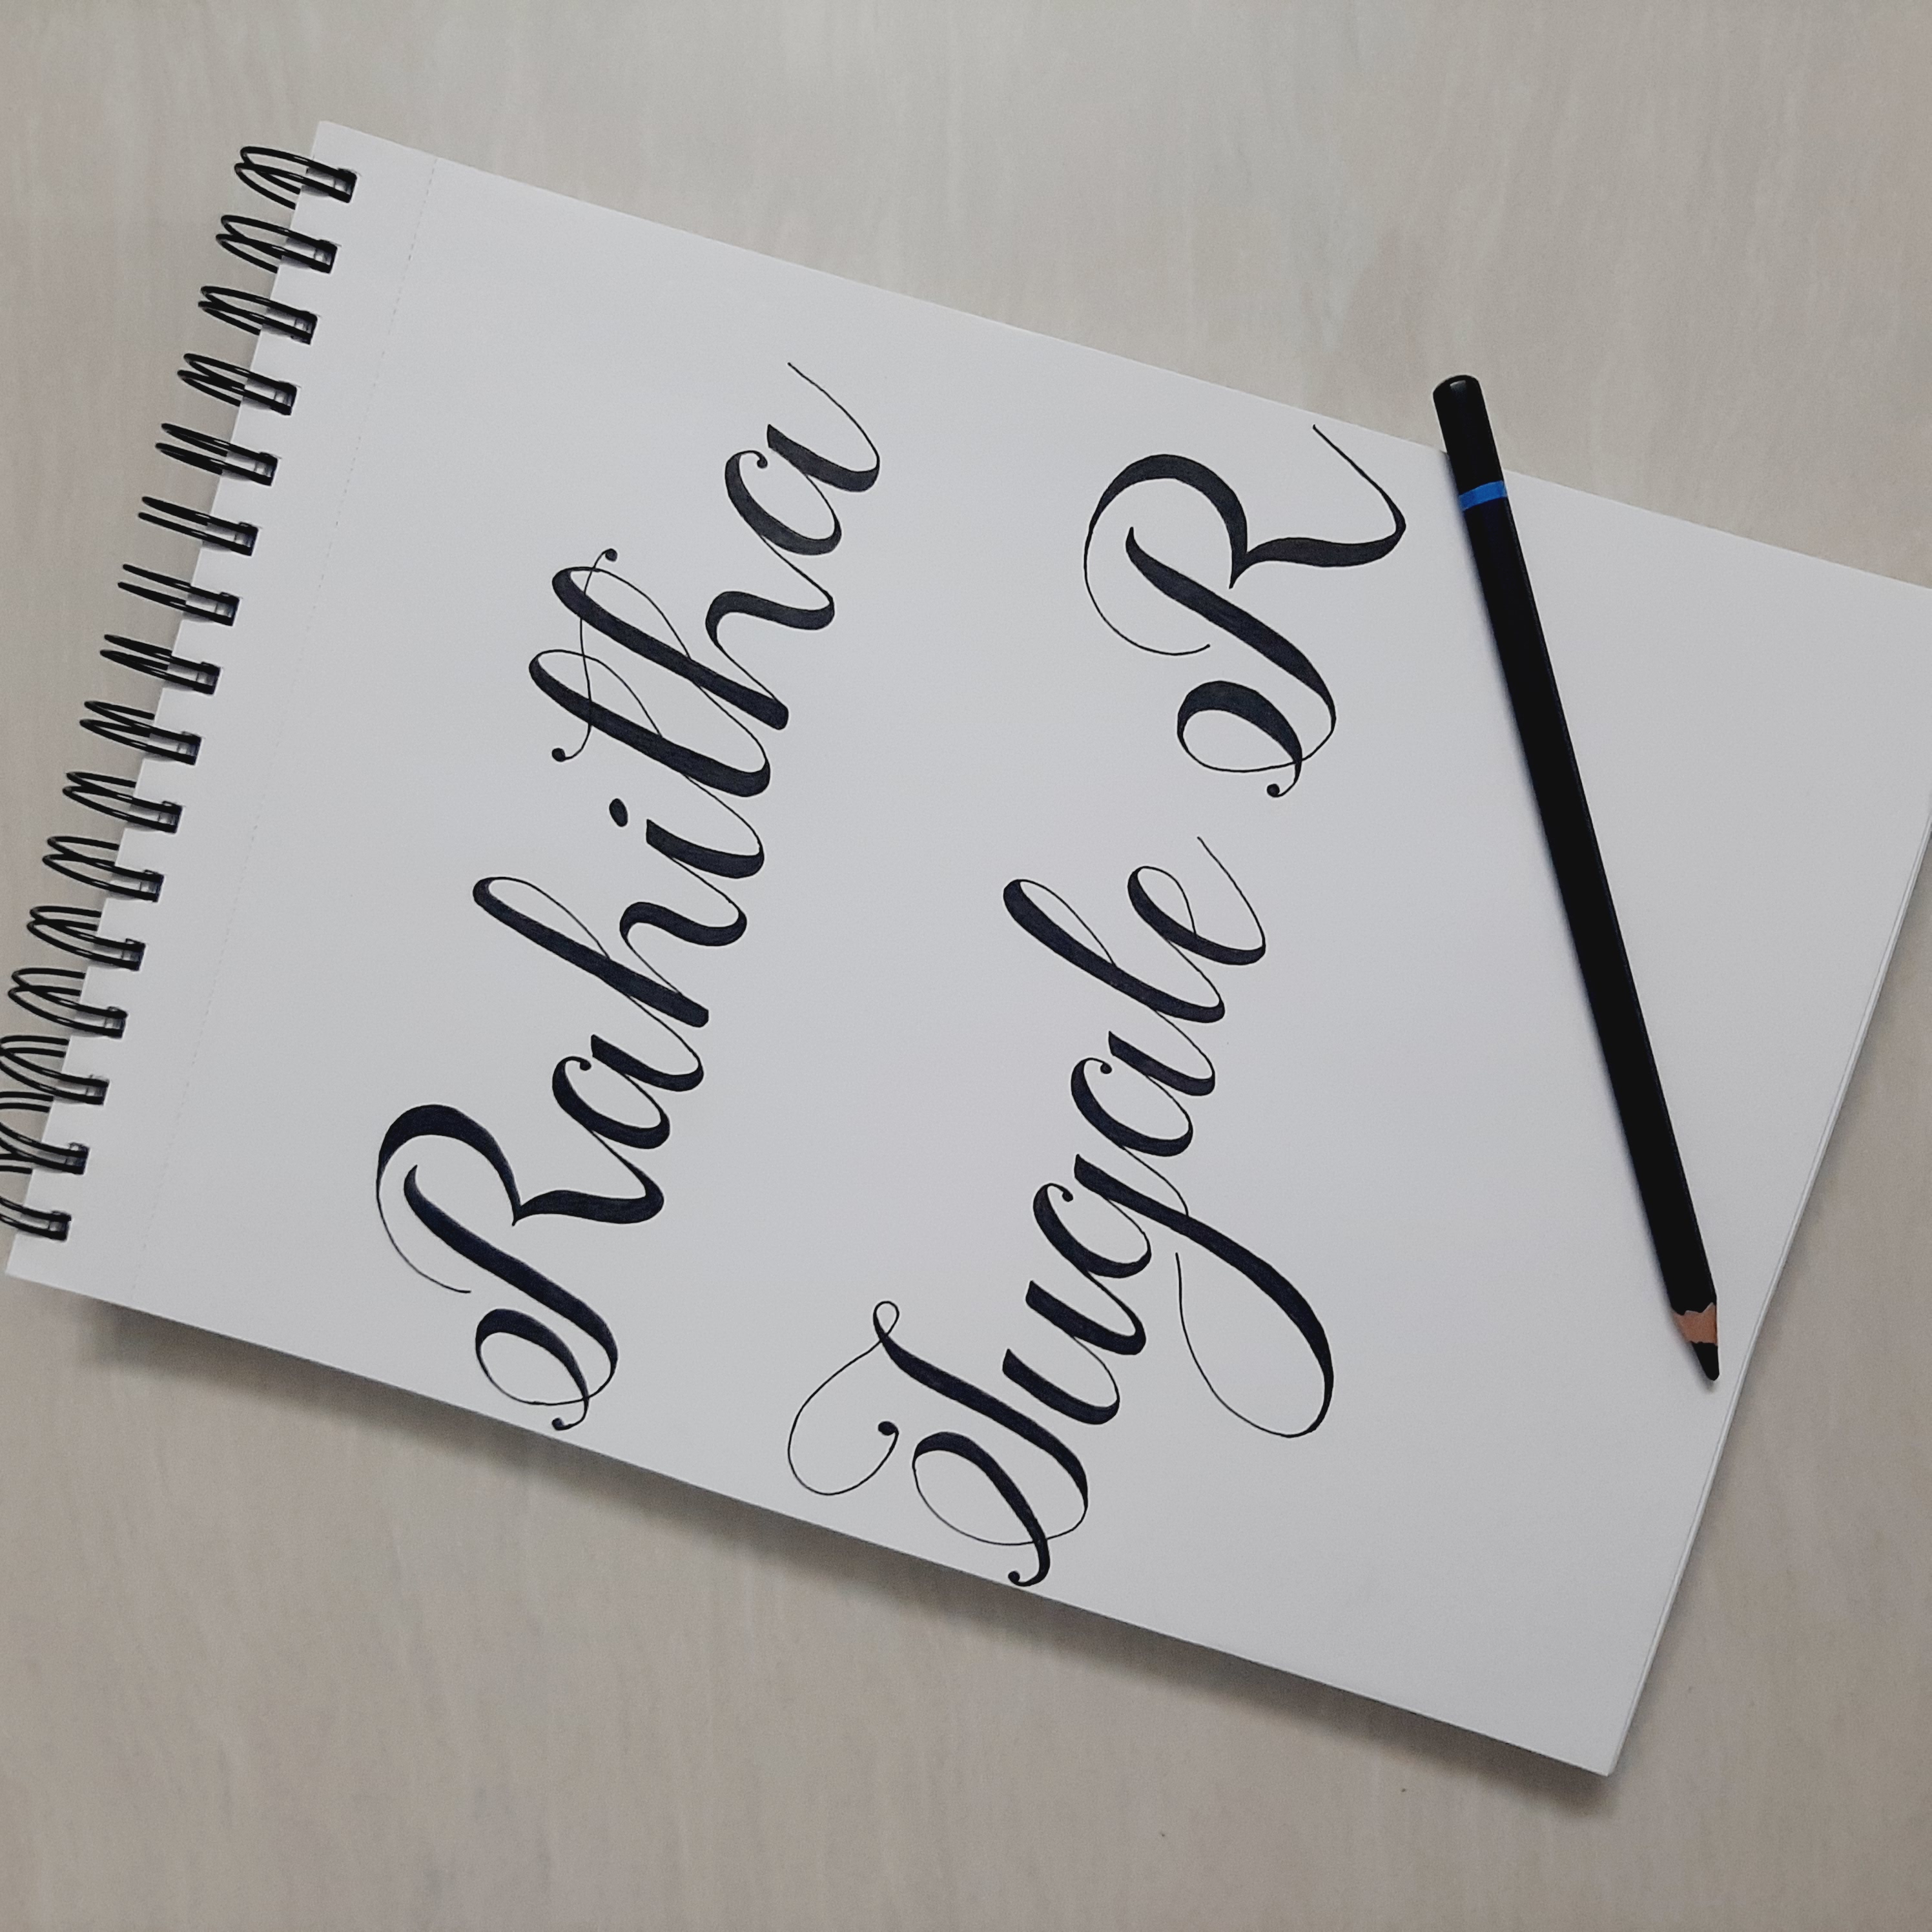 Rahitha
Jugale R